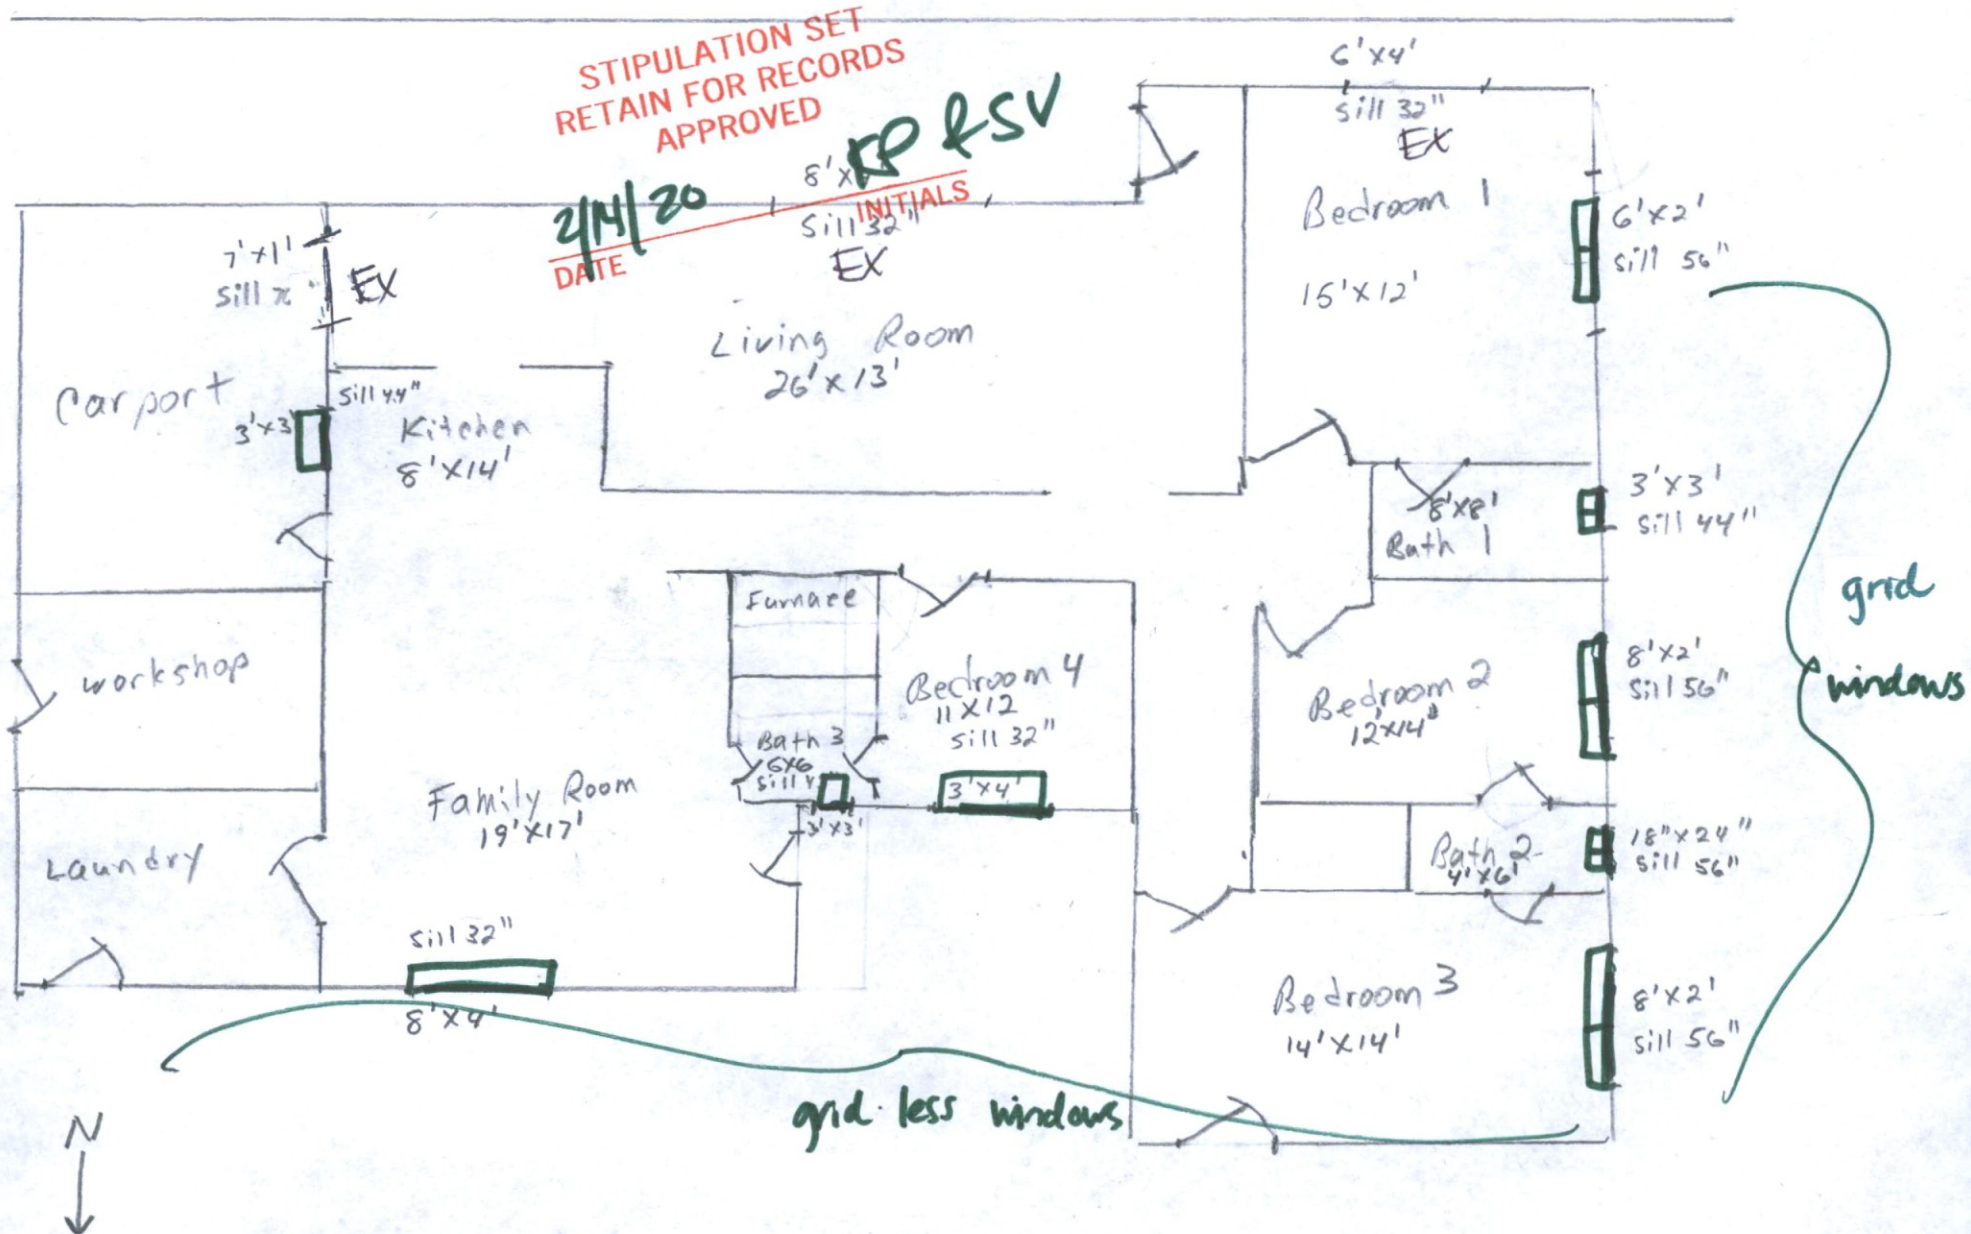 STIPULATION SET
RETAIN FOR RECORDS
APPROVED
KP & SV
INITIALS
2/14/20
DATE
6'x4'
Sill 32"
EX
Bedroom 1
15'x12'
6'x2'
Sill 56"
8'x
Sill 32"
EX
Living Room
26'x13'
7'x1'
Sill
EX
Carport
3'x3'
Sill 44"
Kitchen
8'x14'
8'x8'
Bath 1
3'x3'
Sill 44"
grid
windows
Furnace
workshop
Bedroom 4
11x12
Sill 32"
3'x4'
Bedroom 2
12'x14'
8'x2'
Sill 56"
Bath 3
6x6
Sill
3'x3'
Family Room
19'x17'
Laundry
Bath 2
4'x6'
18"x24"
Sill 56"
Sill 32"
8'x4'
Bedroom 3
14'x14'
8'x2'
Sill 56"
grid less windows
N